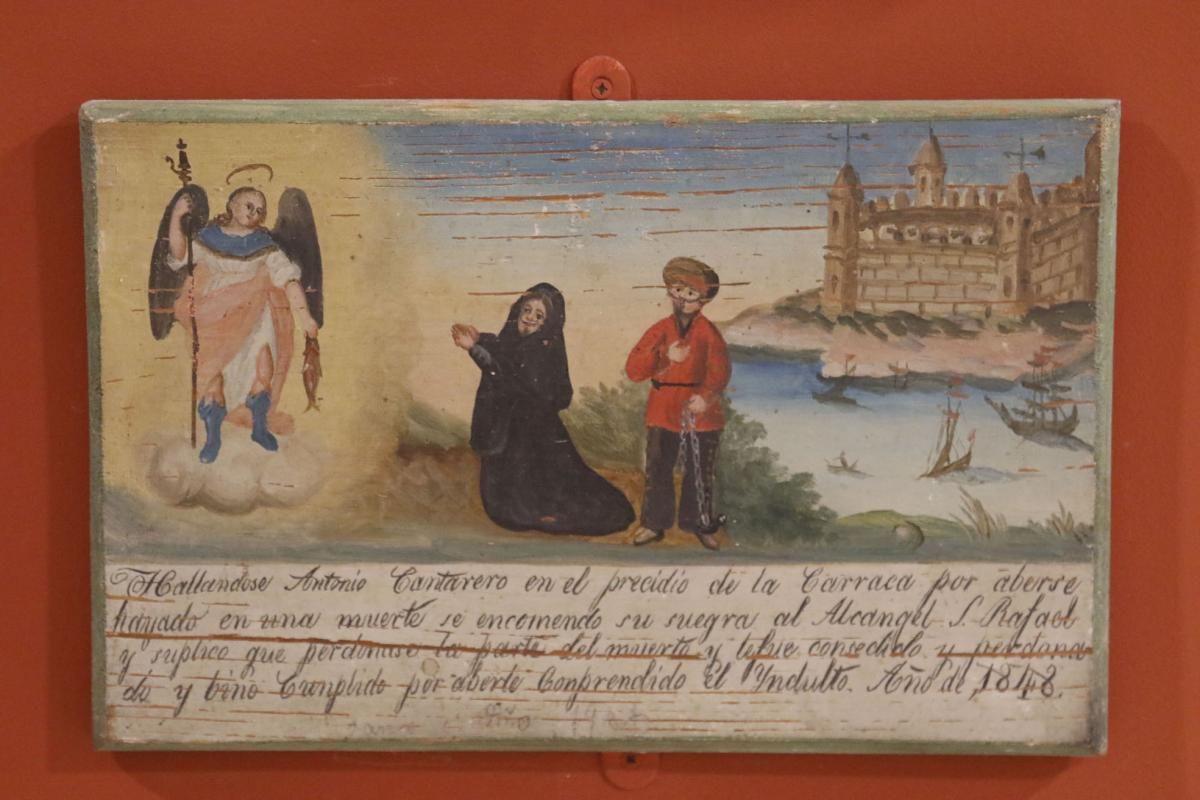 Hallandose Antonio Cantarero en el precidio de la Carraca por aberse
hayado en una muerte se encomendo su suegra al Alcangel S. Rafael
y suplico que perdonase la parte del muerto y lefue consedido y perdona-
do y bino Cunplido por aberle Conprendido el Yndulto. Año de, 1848.